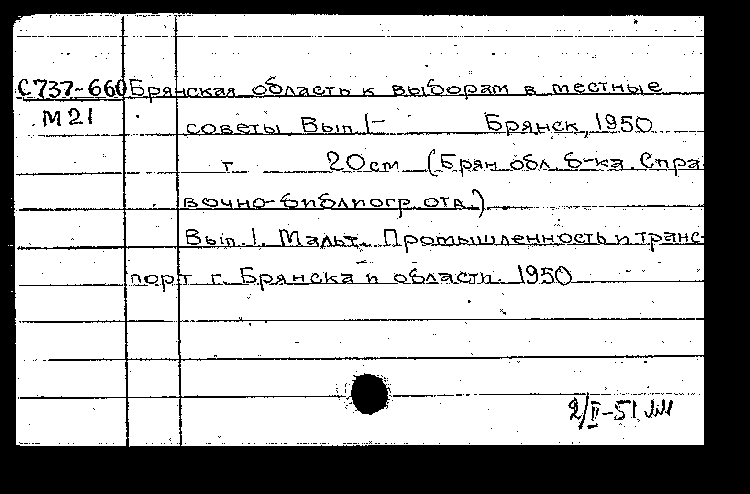 С737-660 Брянская область к выборам в местные
М21 советы Вып. 1- Брянск, 1950
г. 20см (Брян. обл. б-ка. Спра
вочно-библиогр. отд.)
Вып. 1. Мальт. Промышленность и транс-
порт г. Брянска и области. 1950
2/II-51